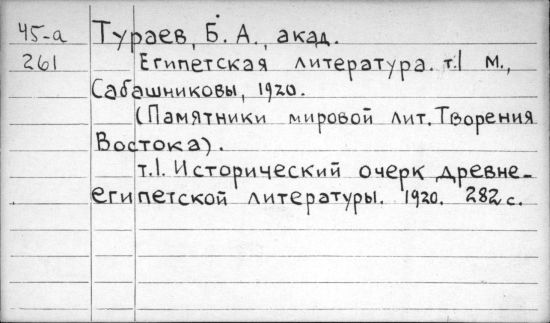 45-а Тураев, Б. А., акад.
261 Египетская литература. т.I М.,
Сабашниковы, 1920.
(Памятники мировой лит. Творения
Востока).
т.I. Исторический очерк древне-
египетской литературы. 1920. 282 с.